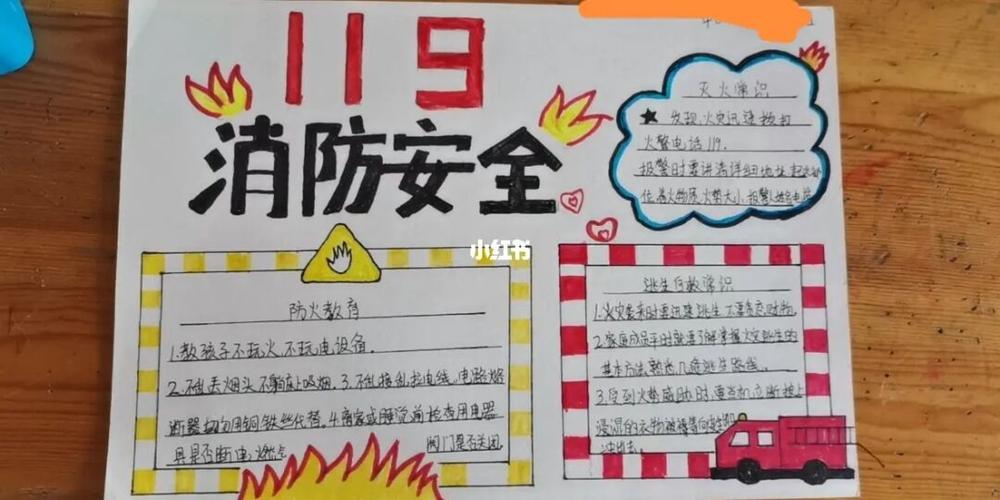 119
消防安全
灭火常识
★发现火灾迅速拨打
火警电话119.
报警时要讲清详细地址、起火部
位、着火物质、火势大小、报警人姓名电话
小红书
防火教育
1.教孩子不玩火、不玩电设备.
2.不乱丢烟头、不躺床上吸烟.3.不乱接乱拉电线、电路熔
断器切勿用铜、铁丝代替.4.离家或睡觉前检查用电器
具是否断电、燃点 阀门是否关闭
逃生自救常识
1.火灾袭来时要迅速逃生不要贪恋财物.
2.家庭成员平时就要了解掌握火灾逃生的
基本方法熟悉几条逃生路线.
3.受到火势威胁时,要当机立断披上
浸湿的衣物被褥等向安全
冲出去.